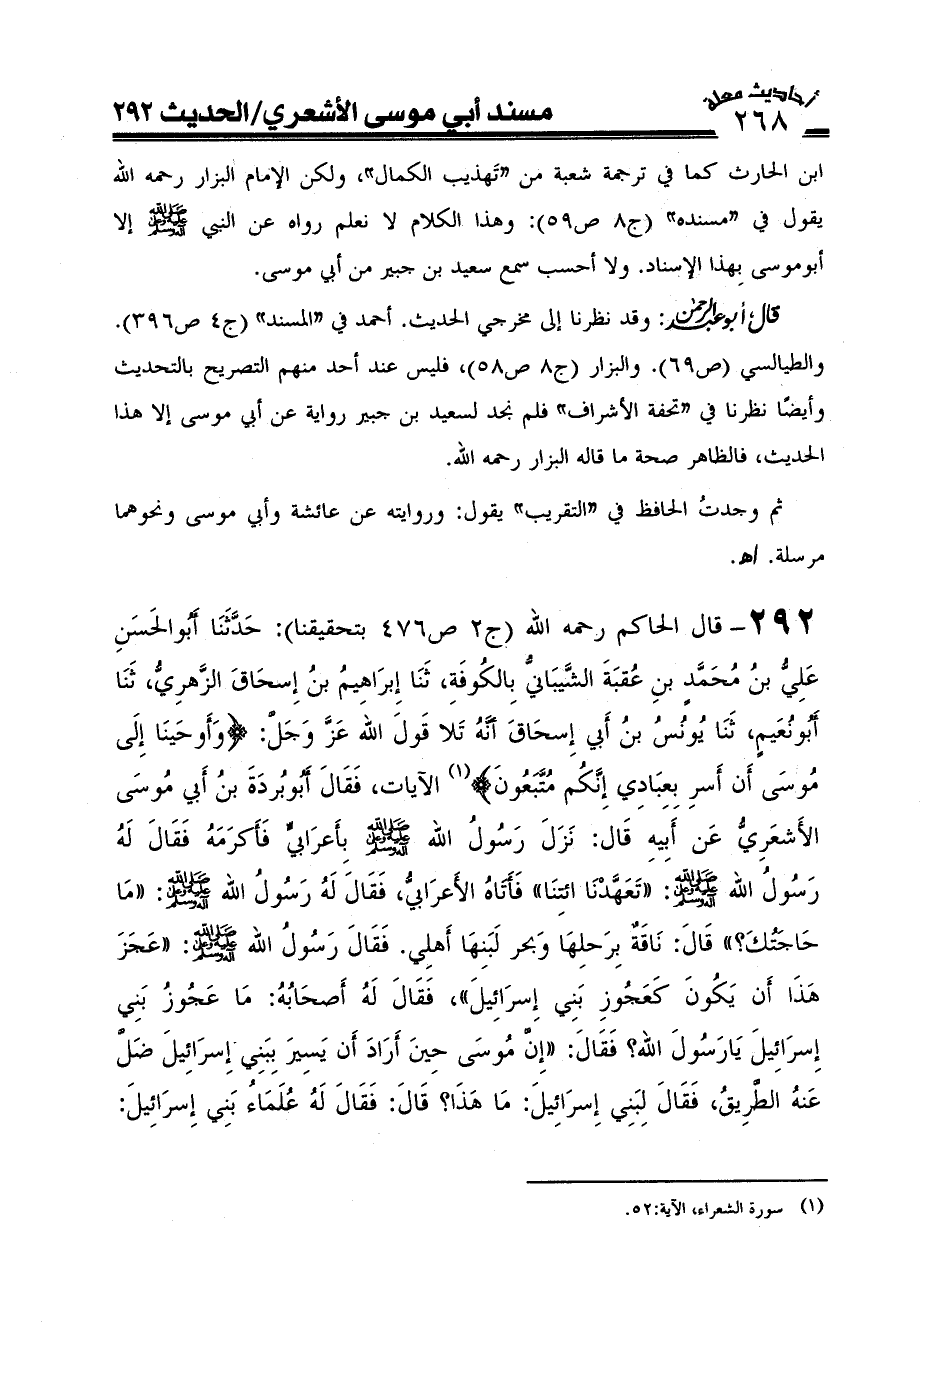 أحاديث معلة
٢٦٨
مسند أبي موسى الأشعري/الحديث ٢٩٢
ابن الحارث كما في ترجمة شعبة من «تهذيب الكمال»، ولكن الإمام البزار رحمه الله
يقول في «مسنده» (ج٨ ص٥٩): وهذا الكلام لا نعلم رواه عن النبي ﷺ إلا
أبوموسى بهذا الإسناد. ولا أحسب سمع سعيد بن جبير من أبي موسى.
قال أبو عبد الرحمن: وقد نظرنا إلى مخرجي الحديث. أحمد في «المسند» (ج٤ ص٣٩٦).
والطيالسي (ص٦٩). والبزار (ج٨ ص٥٨)، فليس عند أحد منهم التصريح بالتحديث
وأيضًا نظرنا في «تحفة الأشراف» فلم نجد لسعيد بن جبير رواية عن أبي موسى إلا هذا
الحديث، فالظاهر صحة ما قاله البزار رحمه الله.
ثم وجدتُ الحافظ في «التقريب» يقول: وروايته عن عائشة وأبي موسى ونحوهما
مرسلة. اﻫ.
٢٩٢- قال الحاكم رحمه الله (ج٢ ص٤٧٦ بتحقيقنا): حَدَّثَنَا أَبُوالحَسَنِ
عَلِيُّ بنُ مُحَمَّدٍ بنِ عُقبَةَ الشَّيبَانيُّ بِالكُوفَةِ، ثَنَا إِبرَاهِيمُ بنُ إِسحَاقَ الزَّهرِيُّ، ثَنَا
أَبُونُعَيمٍ، ثَنَا يُونُسُ بنُ أَبي إِسحَاقَ أَنَّهُ تَلا قَولَ الله عَزَّ وَجَلَّ: ﴿وَأَوحَينَا إِلَى
مُوسَى أَن أَسرِ بِعِبَادِي إِنَّكُم مُتَّبَعُونَ﴾(١) الآيات، فَقَالَ أَبُوبُردَةَ بنُ أَبي مُوسَى
الأَشعَرِيُّ عَن أَبِيهِ قَال: نَزَلَ رَسُولُ الله ﷺ بِأَعرَابيٍّ فَأَكرَمَهُ فَقَالَ لَهُ
رَسُولُ الله ﷺ: «تَعَهَّدْنَا ائتِنَا» فَأَتَاهُ الأَعرَابيُّ، فَقَالَ لَهُ رَسُولُ الله ﷺ: «مَا
حَاجَتُكَ؟» قَالَ: نَاقَةٌ بِرَحلِهَا وَبحر لَبَنِهَا أَهلِي. فَقَالَ رَسُولُ الله ﷺ: «عَجَزَ
هَذَا أَن يَكُونَ كَعَجُوزِ بَنِي إِسرَائِيلَ»، فَقَالَ لَهُ أَصحَابُهُ: مَا عَجُوزُ بَنِي
إِسرَائِيلَ يَارَسُولَ الله؟ فَقَالَ: «إِنَّ مُوسَى حِينَ أَرَادَ أَن يَسِيرَ بِبَنِي إِسرَائِيلَ ضَلَّ
عَنهُ الطَّرِيقُ، فَقَالَ لِبَنِي إِسرَائِيلَ: مَا هَذَا؟ قَالَ: فَقَالَ لَهُ عُلَمَاءُ بَنِي إِسرَائِيلَ:
(١) سورة الشعراء، الآية:٥٢.